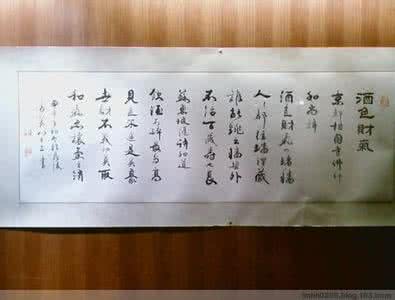 酒色財氣
京都相國寺佛印
和尚詩
酒色財氣四堵墻
人人都往墻裡藏
誰能跳出墻外
不活百歲壽也長
蘇東坡隨詩和道
飲酒不醉最為高
見色不迷是英豪
世財不義切莫取
和氣忍讓氣自消